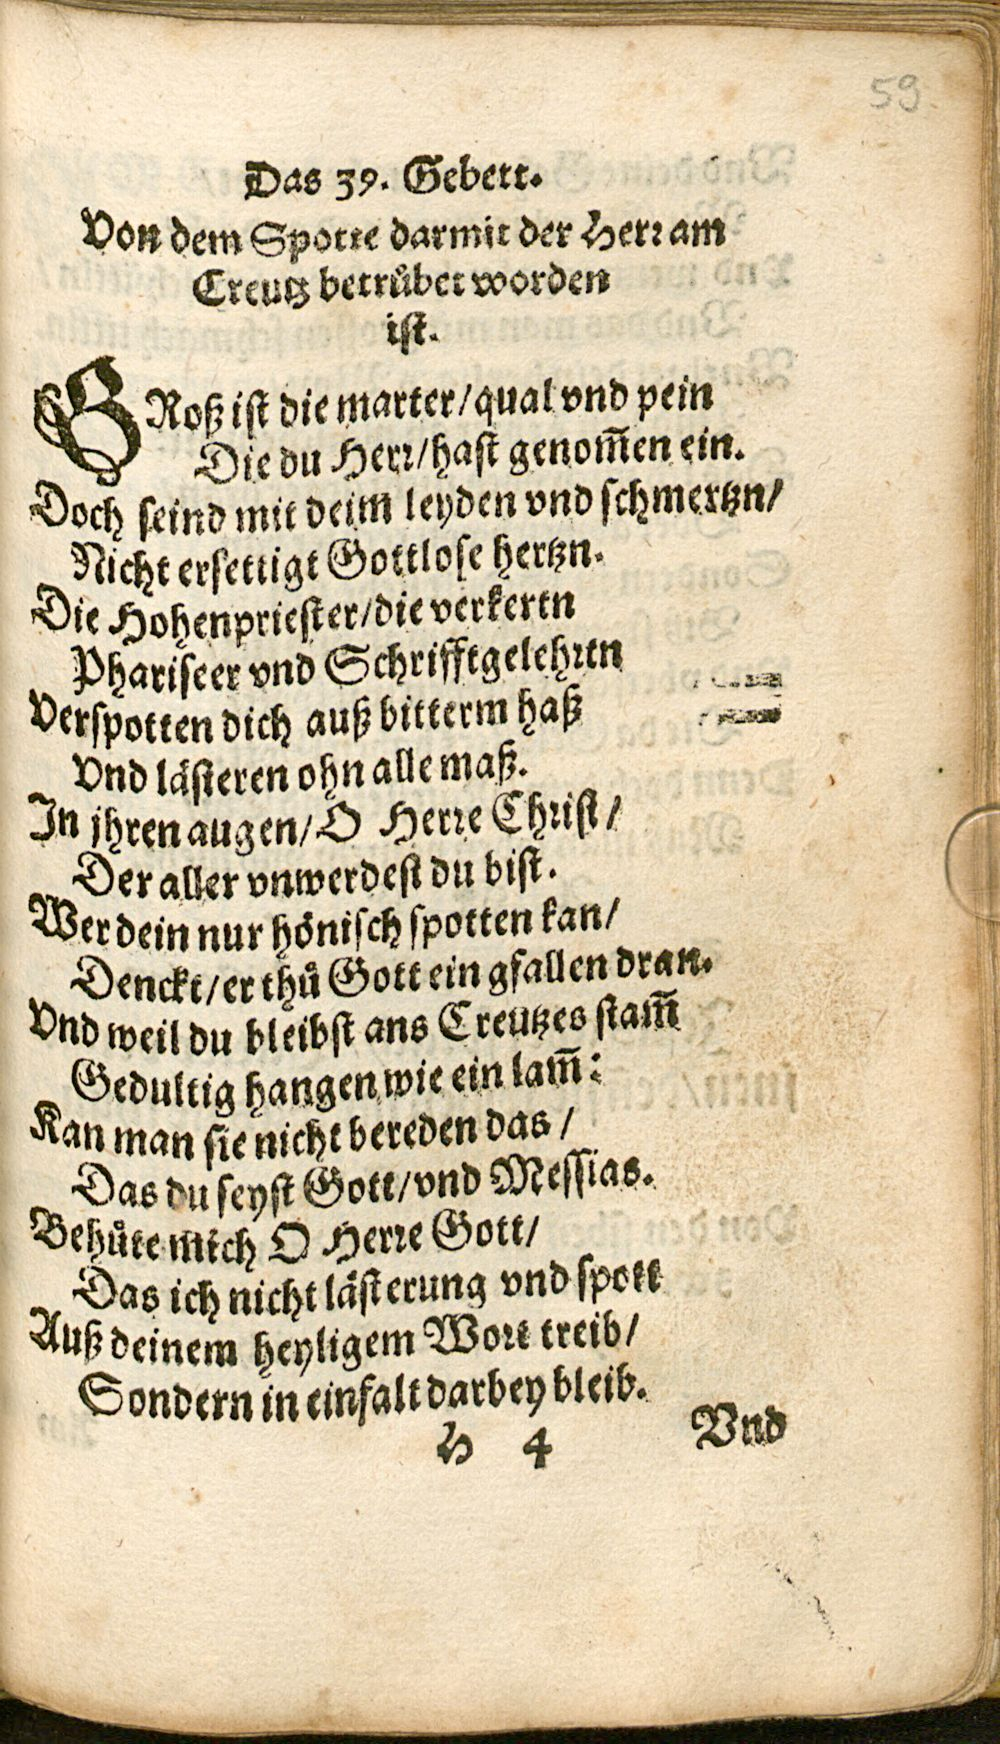 59
Das 39. Gebett.
Von dem Spotte darmit der Herꝛ am
Creutz betruͤbet worden
ist.
GRoß ist die marter/qual vnd pein
Die du Herꝛ/hast genom̃en ein.
Doch seind mit deim leyden vnd schmertzn/
Nicht ersettigt Gottlose hertzn.
Die Hohenpriester/die verkertn
Phariseer vnd Schrifftgelehꝛtn
Verspotten dich auß bitterm haß
Vnd laͤsteren ohn alle maß.
In jhren augen/O Herꝛe Chꝛist/
Der aller vnwerdest du bist.
Wer dein nur hoͤnisch spotten kan/
Denckt/er thuͤ Gott ein gfallen dran.
Vnd weil du bleibst ans Creutzes stam̃
Gedultig hangen wie ein lam̃:
Kan man sie nicht bereden das/
Das du seyst Gott/vnd Messias.
Behuͤte mich O Herꝛe Gott/
Das ich nicht laͤsterung vnd spott
Auß deinem heyligem Woꝛt treib/
Sondern in einfalt darbey bleib.
H 4 Vnd